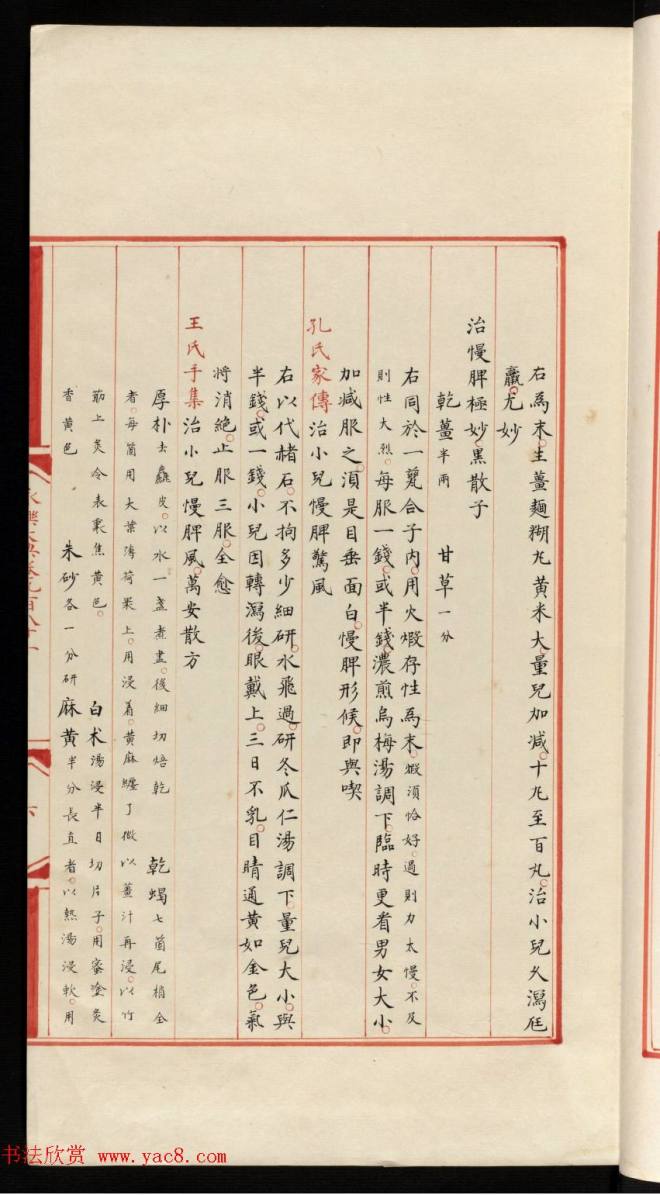 右為末。生薑麵糊丸黃米大。量兒加減。十丸至百丸。治小兒久瀉尫
羸。尤妙
治慢脾極妙。黑散子
乾薑半兩 甘草一分
右同於一甆合子內。用火煅存性為末。煅須恰好。過則力太慢。不及
則性大烈。每服一錢。或半錢。濃煎烏梅湯調下。臨時更看男女大小。
加減服之。須是目垂面白。慢脾形候。即與喫
孔氏家傳治小兒慢脾驚風
右以代赭石。不拘多少細研。水飛過。研冬瓜仁湯調下。量兒大小。與
半錢。或一錢。小兒因轉瀉後。眼戴上。三日不乳。目睛通黃如金色。氣
將消絕。止服三服。全愈
王氏手集治小兒慢脾風。萬安散方
厚朴去麄皮。以水一盞煮盡。後細切焙乾 乾蝎七箇尾梢全
者。每箇用大葉薄荷裹上。用浸着。黃麻纏了。微以薑汁再浸。以竹
筯上炙令表裏焦黃色。 白术湯浸半日切片子。用蜜塗炙
香黃色 朱砂各一分研 麻黃半分長直者。以熱湯浸軟。用
书法欣赏 www.yac8.com